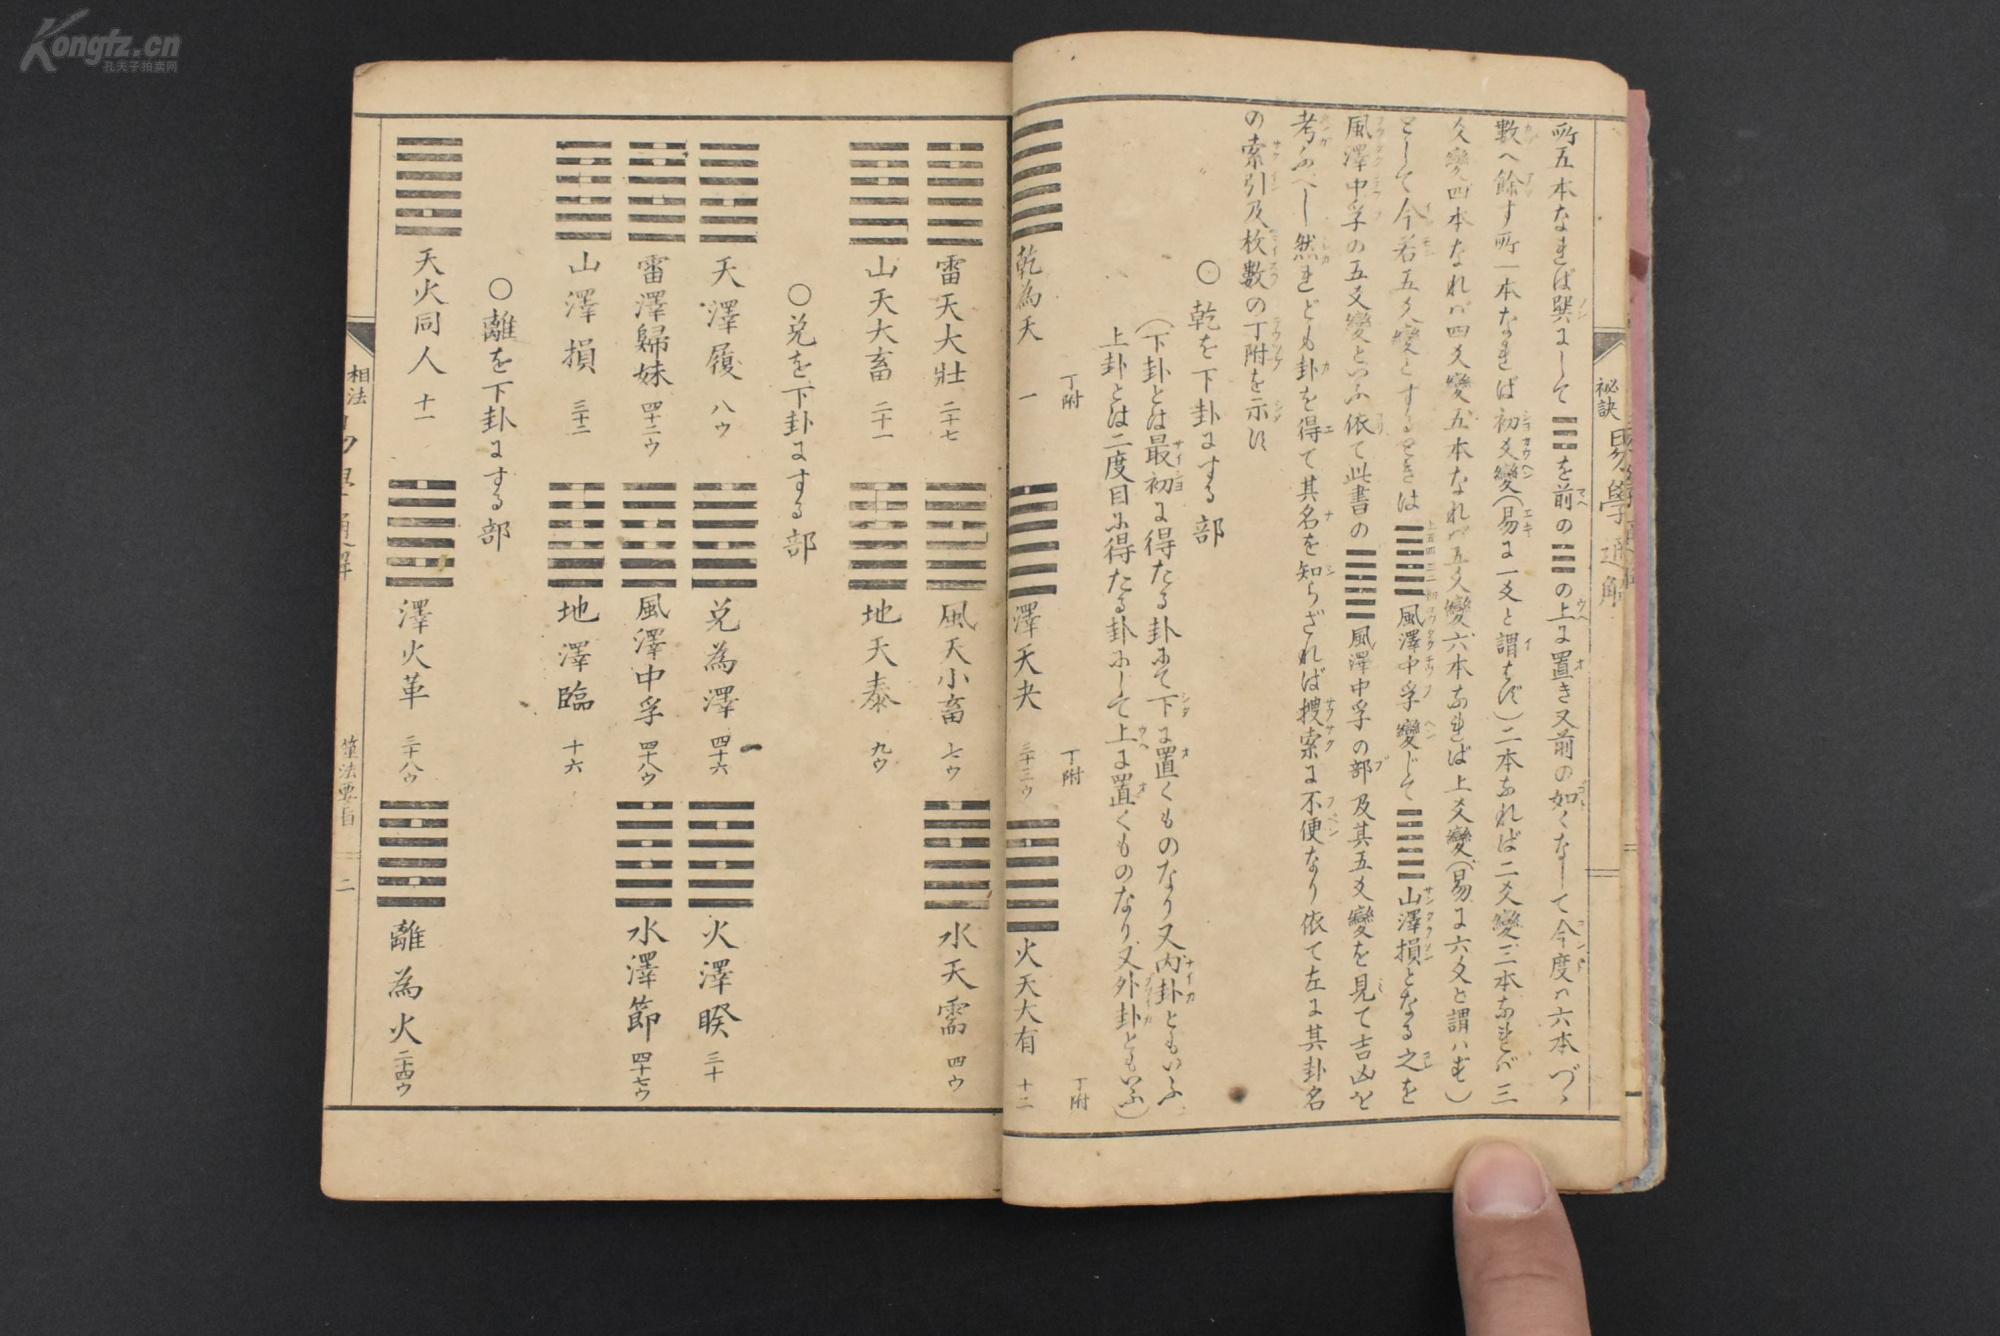 Kongfz.cn
孔夫子拍卖网
秘訣 易學通解
所五本なれば巽にしてを前のの上に置き又前の如くなして今度ハ六本づゝ
數へ餘す所一本なれば初爻變(易に一爻と謂はず)二本なれば二爻變三本なれバ三
爻變四本なれバ四爻變五本なれバ五爻變六本なれば上爻變(易に六爻と謂ハず)
として今若五爻變とするときは 上五四三二初 風澤中孚變じて山澤損となる之を
風澤中孚の五爻變といふ依て此書の風澤中孚の部及其五爻變を見て吉凶を
考ふべし然れども卦を得て其名を知らざれば捜索に不便なり依て左に其卦名
の索引及枚數の丁附を示す
○乾を下卦にする部
(下卦とは最初に得たる卦にて下に置くものなり又内卦ともいふ
上卦とは二度目に得たる卦にして上に置くものなり又外卦ともいふ)
丁附 丁附 丁附
乾為天 一 澤天夬 三十三ウ 火天大有 十二
雷天大壯 二十七 風天小畜 七ウ 水天需 四ウ
山天大畜 二十一 地天泰 九ウ
○兌を下卦にする部
天澤履 八ウ 兌為澤 四十六 火澤睽 三十
雷澤歸妹 四十二ウ 風澤中孚 四十八ウ 水澤節 四十七ウ
山澤損 三十二 地澤臨 十六
○離を下卦にする部
天火同人 十一 澤火革 三十八ウ 離為火 二十四ウ
相法
筮法要旨 二